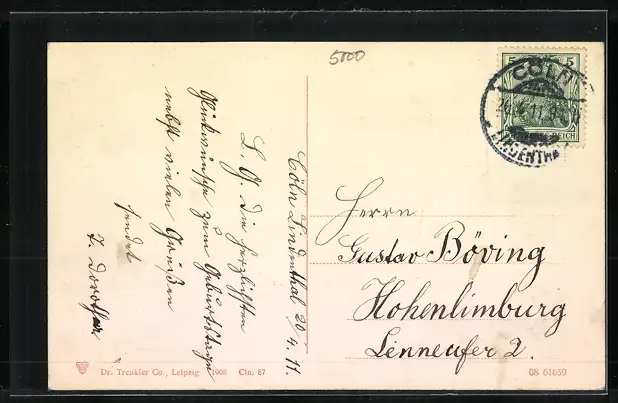 5000
5 5
CÖLN
20.4.11.
LINDENTHAL
REICH
Cöln Lindenthal 20/4. 11.
L. G. Die herzlichsten
Glückwünsche zum Geburtstage
nebst vielen Grüßen
sendet
Herrn
Gustav Böving
Hohenlimburg
Lenneufer 2.
Dr. Trenkler Co., Leipzig 1908 Cln. 87
08 61659